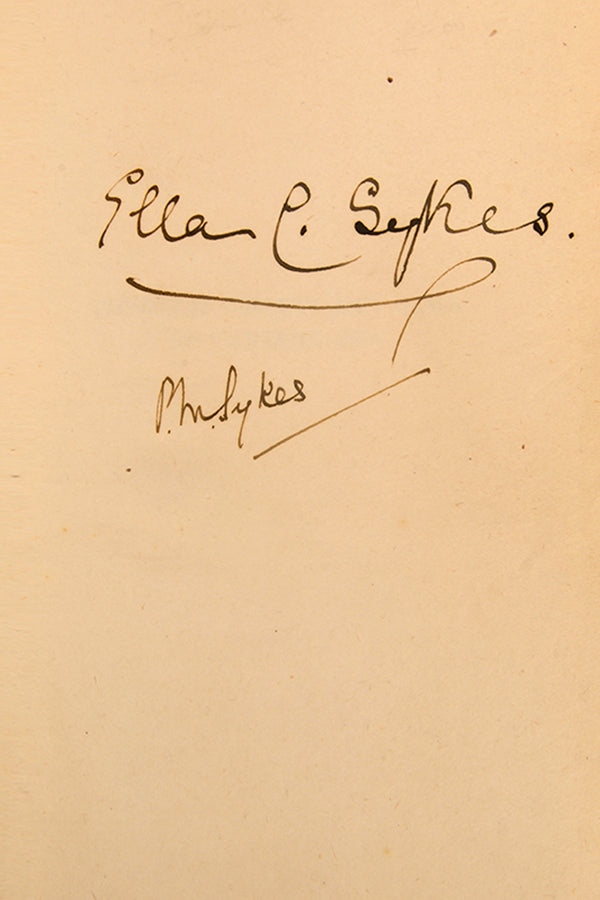 Ella C. Sykes.
P. M. Sykes